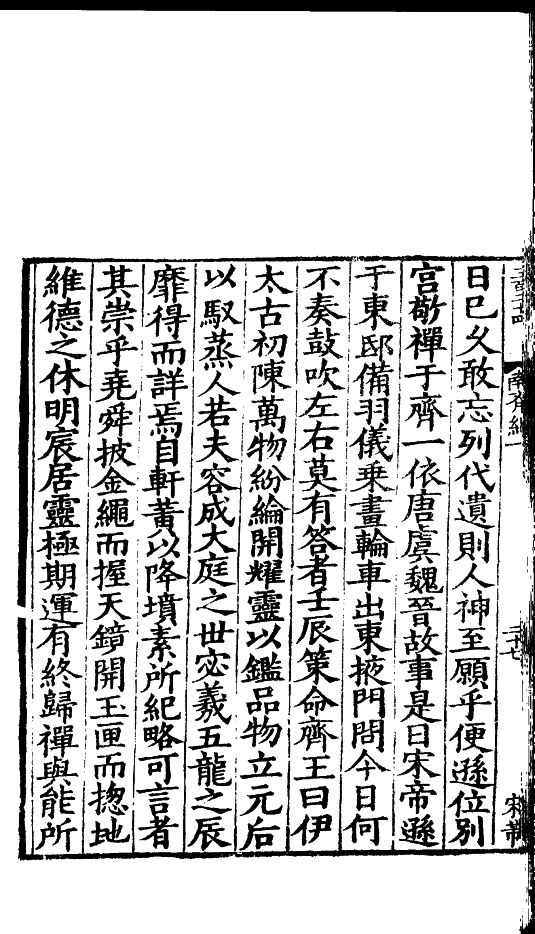 日已久敢忘列代遺則人神至願乎便遜位别
宫敬禪于齊一依唐虞魏晉故事是日宋帝遜
于東邸備羽儀乗畫輪車出東掖門問今日何
不奏鼓吹左右莫有答者壬辰策命齊王曰伊
太古初陳萬物紛綸開耀靈以鑑品物立元后
以馭蒸人若夫容成大庭之世宓羲五龍之辰
靡得而詳焉自軒黄以降墳素所紀略可言者
其崇乎堯舜披金繩而握天鏡開玉匣而揔地
維德之休明宸居靈極期運有終歸禪與能所